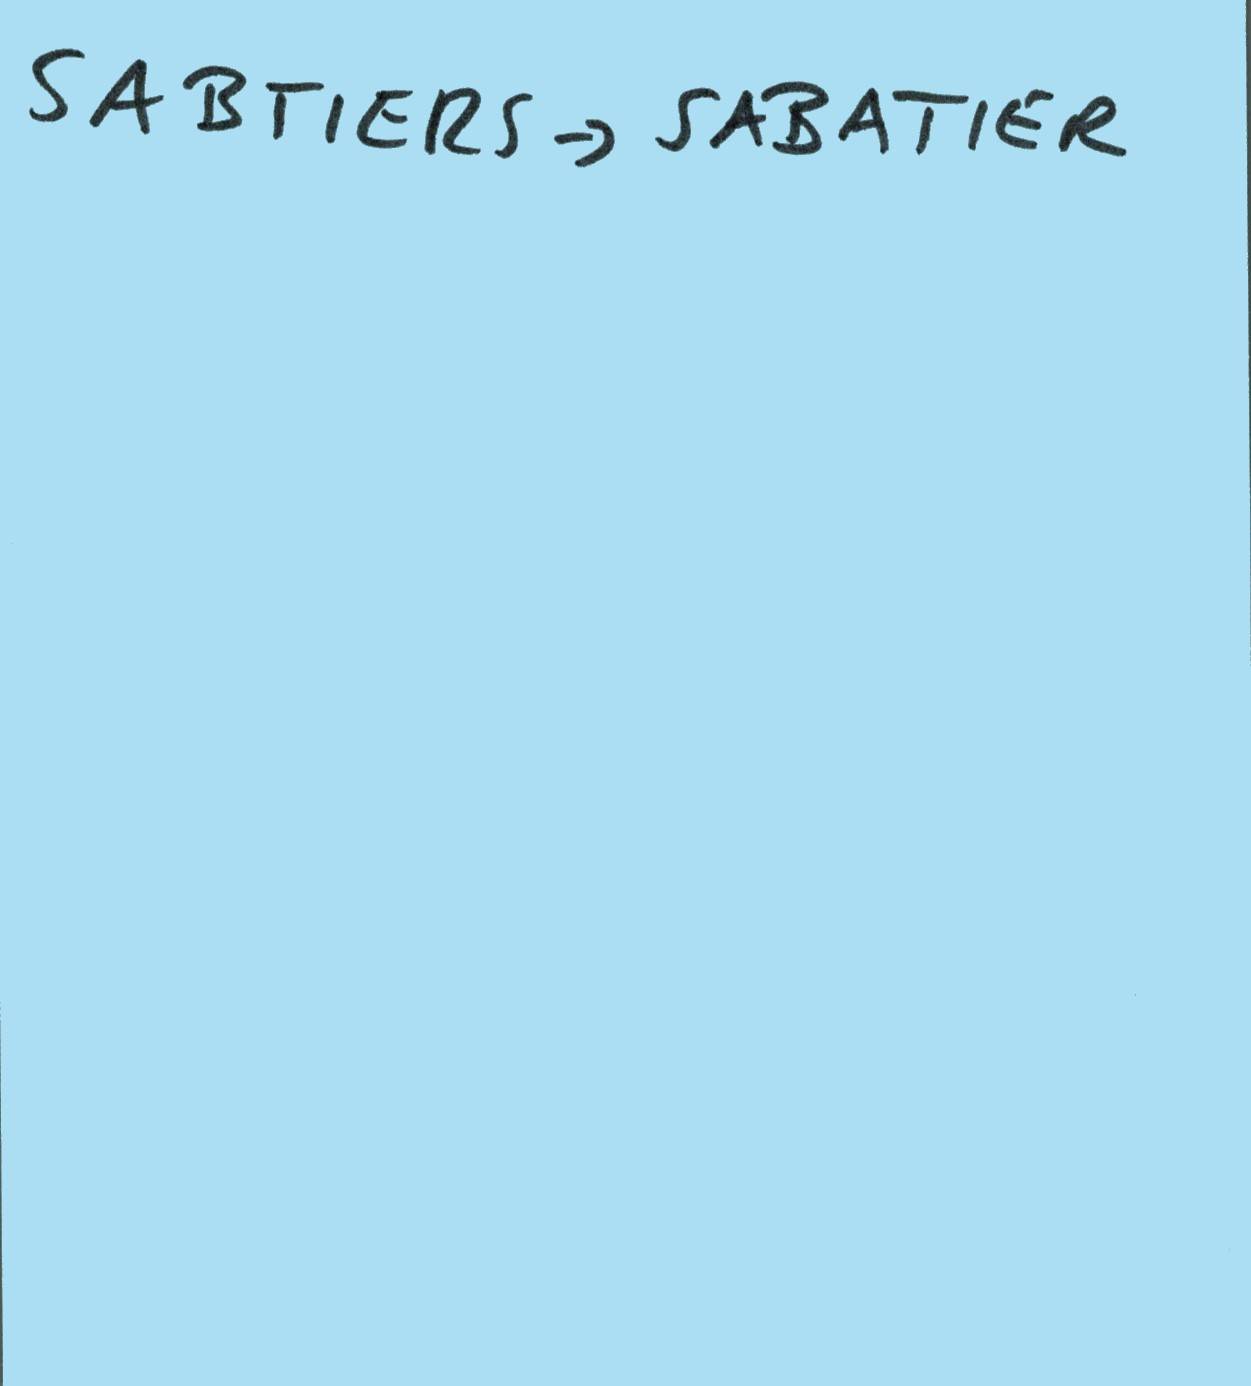 SABTIERS → SABATIER